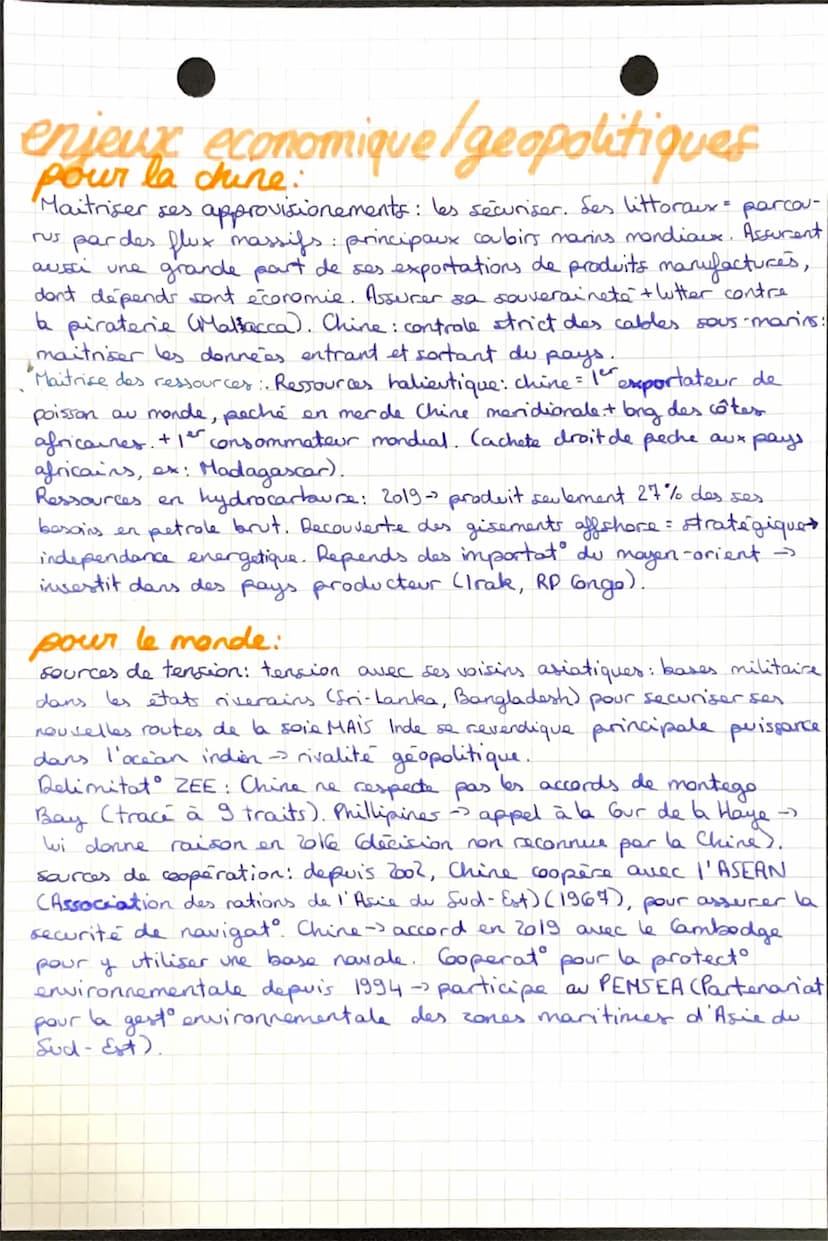 enjeux economique/geopolitiques
pour la chine:
Maitriser ses approvisionements: les sécuriser. Ses littoraux = parcou-
rus par des flux massifs: principaux couloirs marins mondiaux. Assurent
aussi une grande part de ses exportations de produits manufacturés,
dont dépends sont économie. Assurer sa souveraineté + lutter contre
la piraterie (Malacca). Chine: controle strict des cables sous-marins:
maitriser les données entrant et sortant du pays.
Maitrise des ressources: Ressources halieutique: chine = 1er exportateur de
poisson au monde, peché en mer de Chine meridionale + long des côtes
africaines. + 1er consommateur mondial. (achete droit de peche aux pays
africains, ex: Madagascar).
Ressources en hydrocarbure: 2019 → produit seulement 27% des ses
besoins en petrole brut. Decouverte des gisements offshore = stratégique →
independance energetique. Depends des importat° du moyen-orient →
investit dans des pays producteur (Irak, RP Congo).
pour le monde:
sources de tension: tension avec ses voisins asiatiques: bases militaire
dans les états riverains (Sri-Lanka, Bangladesh) pour securiser ses
nouvelles routes de la soie MAIS Inde se revendique principale puissance
dans l'océan indien → rivalité géopolitique.
Delimitat° ZEE: Chine ne respecte pas les accords de montego
Bay (tracé à 9 traits). Phillipines → appel à la Cour de la Haye →
lui donne raison en 2016 (décision non reconnue par la Chine).
sources de coopération: depuis 2002, Chine coopère avec l'ASEAN
(Association des nations de l'Asie du Sud-Est) (1967), pour assurer la
securité de navigat°. Chine → accord en 2019 avec le Cambodge
pour y utiliser une base navale. Cooperat° pour la protect°
environnementale depuis 1994 → participe au PEMSEA (Partenariat
pour la gest° environnementale des zones maritimes d'Asie du
Sud-Est).